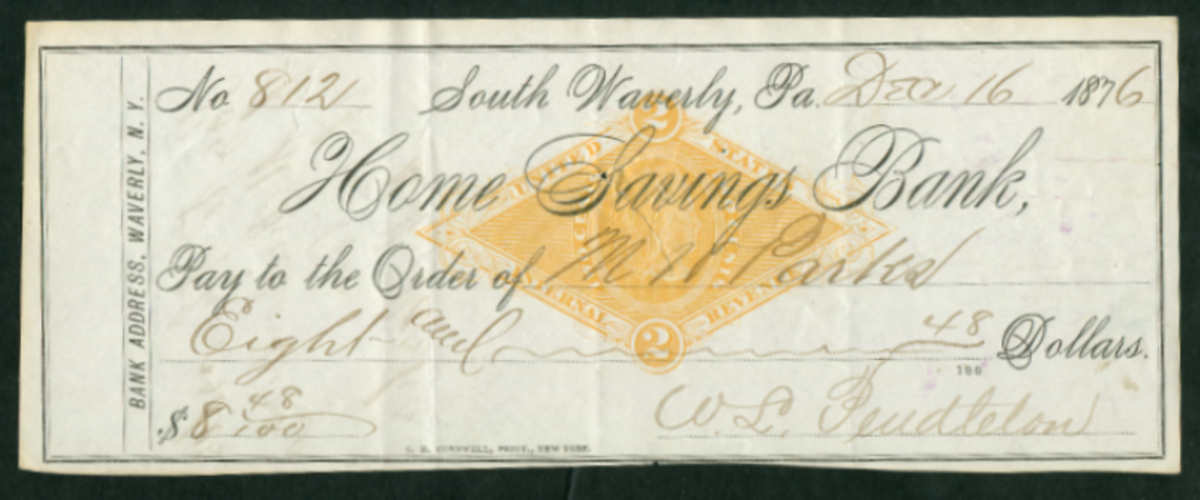 BANK ADDRESS, WAVERLY, N.Y.
No 812 South Waverly, Pa. Dec 16 1876
2
UNITED STATES
Home Savings Bank,
Pay to the Order of M W Parks
INTERNAL REVENUE
2
Eight and 48/100 Dollars.
$8 48/100
W. L. Pendleton
PRINT., NEW YORK.